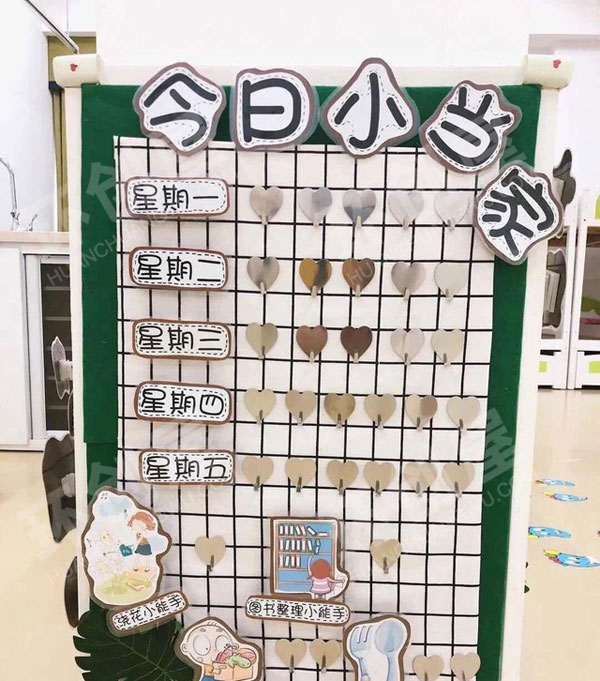 今日小当家
星期一
星期二
星期三
星期四
星期五
浇花小能手
图书整理小能手